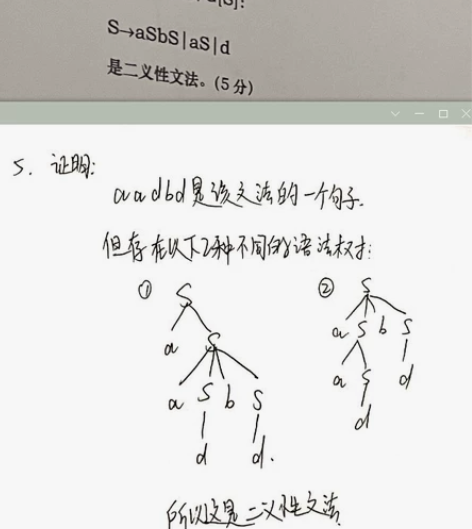 S→aSbS|aS|d
是二义性文法。(5分)
5. 证明:
aadbd是该文法的一个句子.
但存在以下2种不同的语法树:
① S
a S
a S b S
d d.
② S
a S b S
a S d
d
所以这是二义性文法